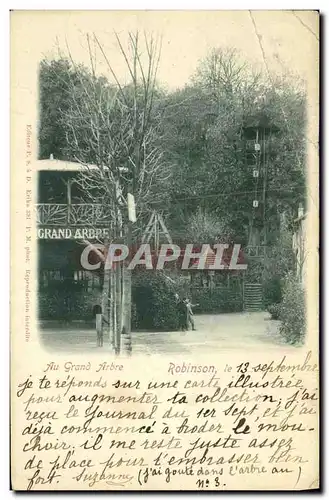 GRAND ARBRE
CARPHILA
Au Grand Arbre
Robinson, le 13 septembre
je te réponds sur une carte illustrée
pour augmenter ta collection. j'ai
reçu le Journal du 1er Sept, et j'ai
déjà commencé à broder le mou-
choir. il me reste juste assez
de place pour t'embrasser bien
fort. Suzanne (j'ai gouté dans l'arbre au
n° 3.